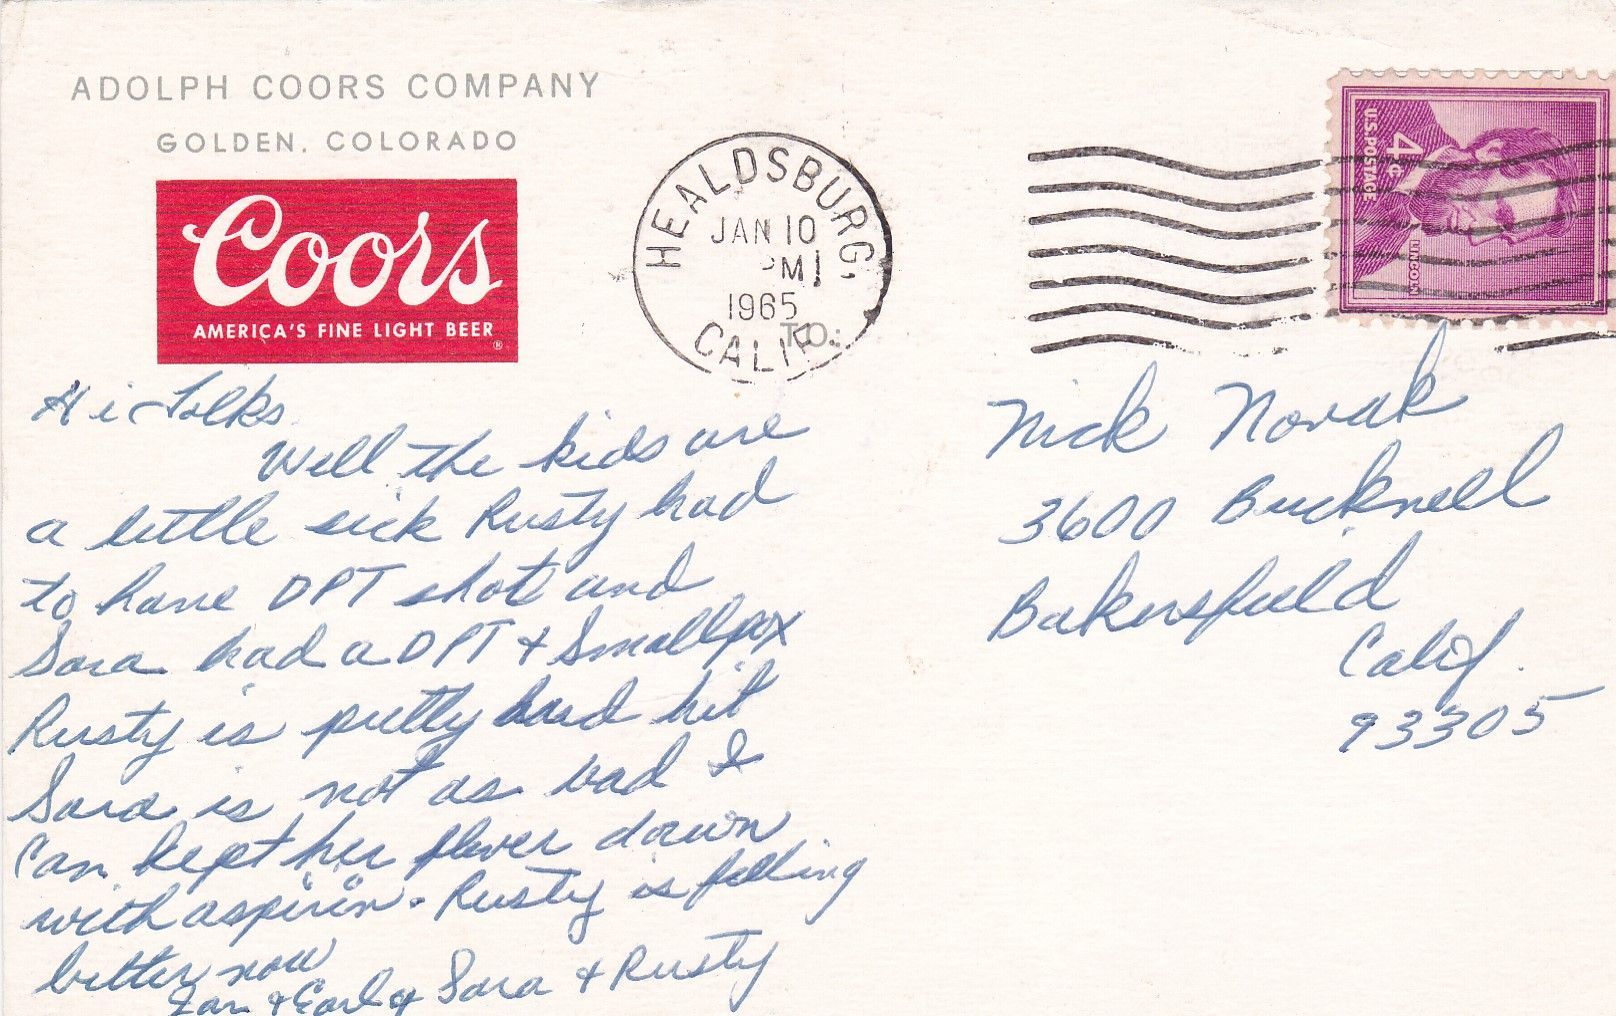 ADOLPH COORS COMPANY
GOLDEN, COLORADO
Coors
AMERICA'S FINE LIGHT BEER
®
HEALDSBURG,
JAN 10
PM
1965
CALIF.
TO:
4¢
U.S. POSTAGE
LINCOLN
Hi Folks
Well the kids are
a little sick Rusty had
to have DPT shot and
Sara had a DPT & Smallpox
Rusty is pretty hard hit
Sara is not as bad I
Can kept her fever down
with aspirin. Rusty is felling
better now
& Earl & Sara & Rusty
Nick Novak
3600 Bucknell
Bakersfield
Calif.
93305